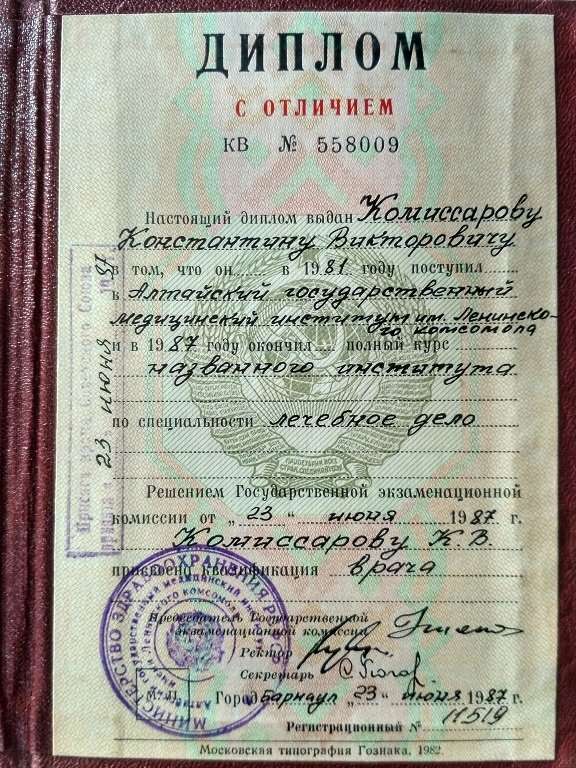 ДИПЛОМ
С ОТЛИЧИЕМ
КВ № 558009
Настоящий диплом выдан Комиссарову
Константину Викторовичу
в том, что он в 1981 году поступил
в Алтайский государственный
медицинский институт им. Ленинско-
го комсомола
и в 1987 году окончил полный курс
названного института
по специальности лечебное дело
Решением Государственной экзаменационной
комиссии от „23“ июня 1987 г.
Комиссарову К. В.
присвоена квалификация врача
Председатель Государственной
экзаменационной комиссии
Ректор
Секретарь
М. П.
Город Барнаул „23“ июня 1987 г.
Регистрационный № 11519
Московская типография Гознака. 1982.
23 июня 87
МИНИСТЕРСТВО ЗДРАВООХРАНЕНИЯ
государственный медицинский институт
имени Ленинского комсомола
ПРОЛЕТАРИИ ВСЕХ
СТРАН, СОЕДИНЯЙТЕСЬ!